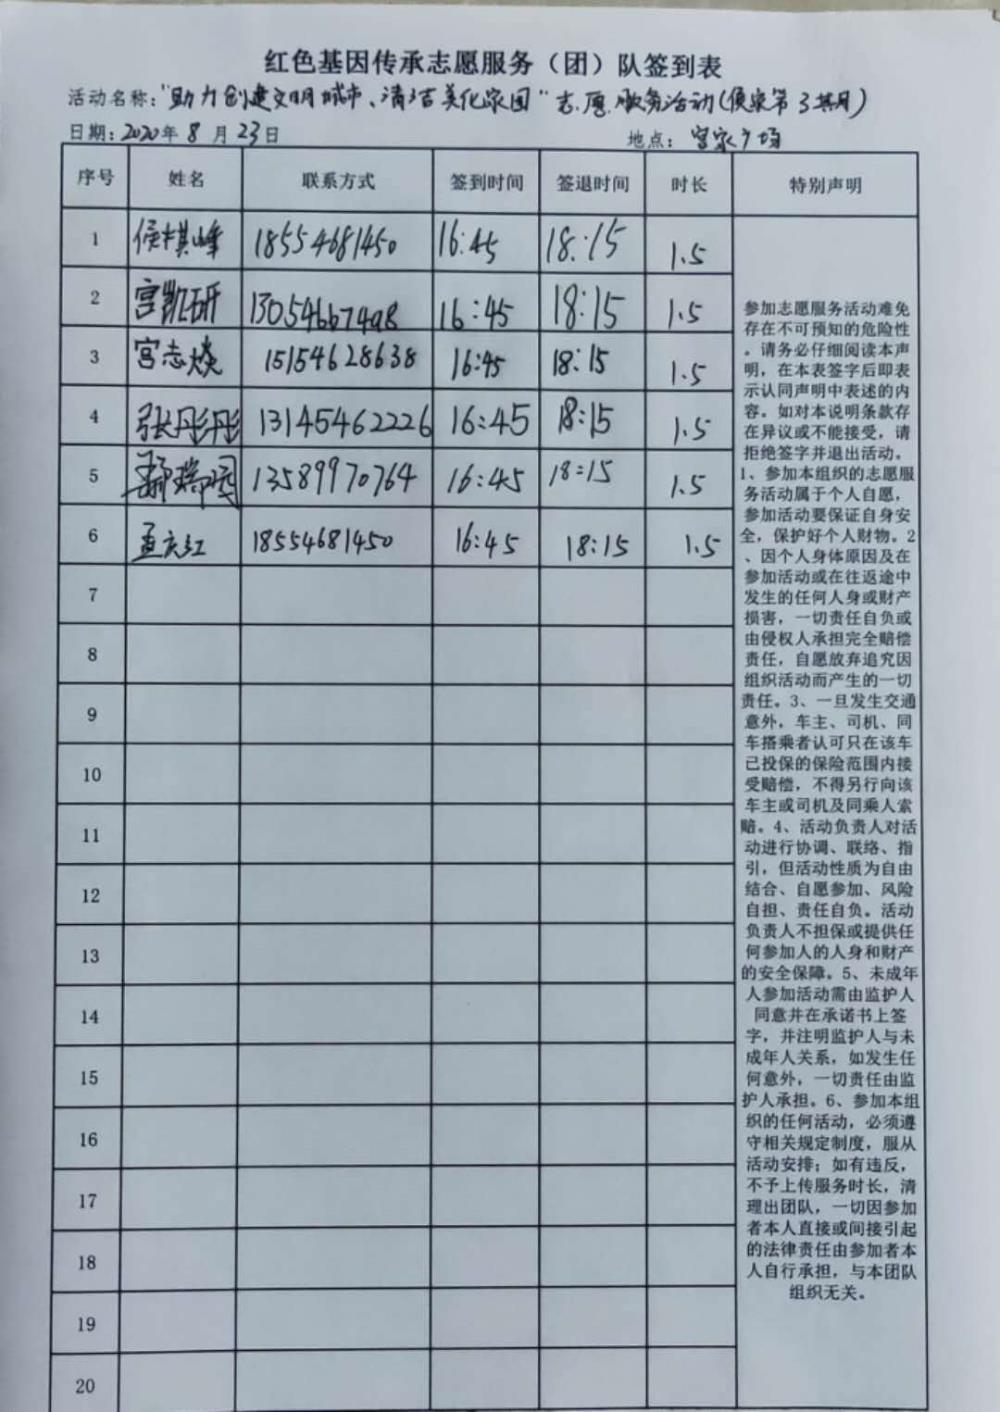 红色基因传承志愿服务（团）队签到表
活动名称："助力创建文明城市、清洁美化家园"志愿服务活动(侯家第3期)
日期：2020年8月23日 地点：宫家广场
序号 姓名 联系方式 签到时间 签退时间 时长 特别声明
1 侯棋峰 18554681450 16:45 18:15 1.5
2 宫凯研 13054667498 16:45 18:15 1.5
3 宫志焕 15154628638 16:45 18:15 1.5
4 张彤彤 13145462226 16:45 18:15 1.5
5 13589970764 16:45 18:15 1.5
6 孟庆红 18554681450 16:45 18:15 1.5
7
8
9
10
11
12
13
14
15
16
17
18
19
20
参加志愿服务活动难免
存在不可预知的危险性
。请务必仔细阅读本声
明，在本表签字后即表
示认同声明中表述的内
容。如对本说明条款存
在异议或不能接受，请
拒绝签字并退出活动。
1、参加本组织的志愿服
务活动属于个人自愿，
参加活动要保证自身安
全，保护好个人财物。2
、因个人身体原因及在
参加活动或在往返途中
发生的任何人身或财产
损害，一切责任自负或
由侵权人承担完全赔偿
责任，自愿放弃追究因
组织活动而产生的一切
责任。3、一旦发生交通
意外，车主、司机、同
车搭乘者认可只在该车
已投保的保险范围内接
受赔偿，不得另行向该
车主或司机及同乘人索
赔。4、活动负责人对活
动进行协调、联络、指
引，但活动性质为自由
结合、自愿参加、风险
自担、责任自负。活动
负责人不担保或提供任
何参加人的人身和财产
的安全保障。5、未成年
人参加活动需由监护人
同意并在承诺书上签
字，并注明监护人与未
成年人关系，如发生任
何意外，一切责任由监
护人承担。6、参加本组
织的任何活动，必须遵
守相关规定制度，服从
活动安排；如有违反，
不予上传服务时长，清
理出团队，一切因参加
者本人直接或间接引起
的法律责任由参加者本
人自行承担，与本团队
组织无关。